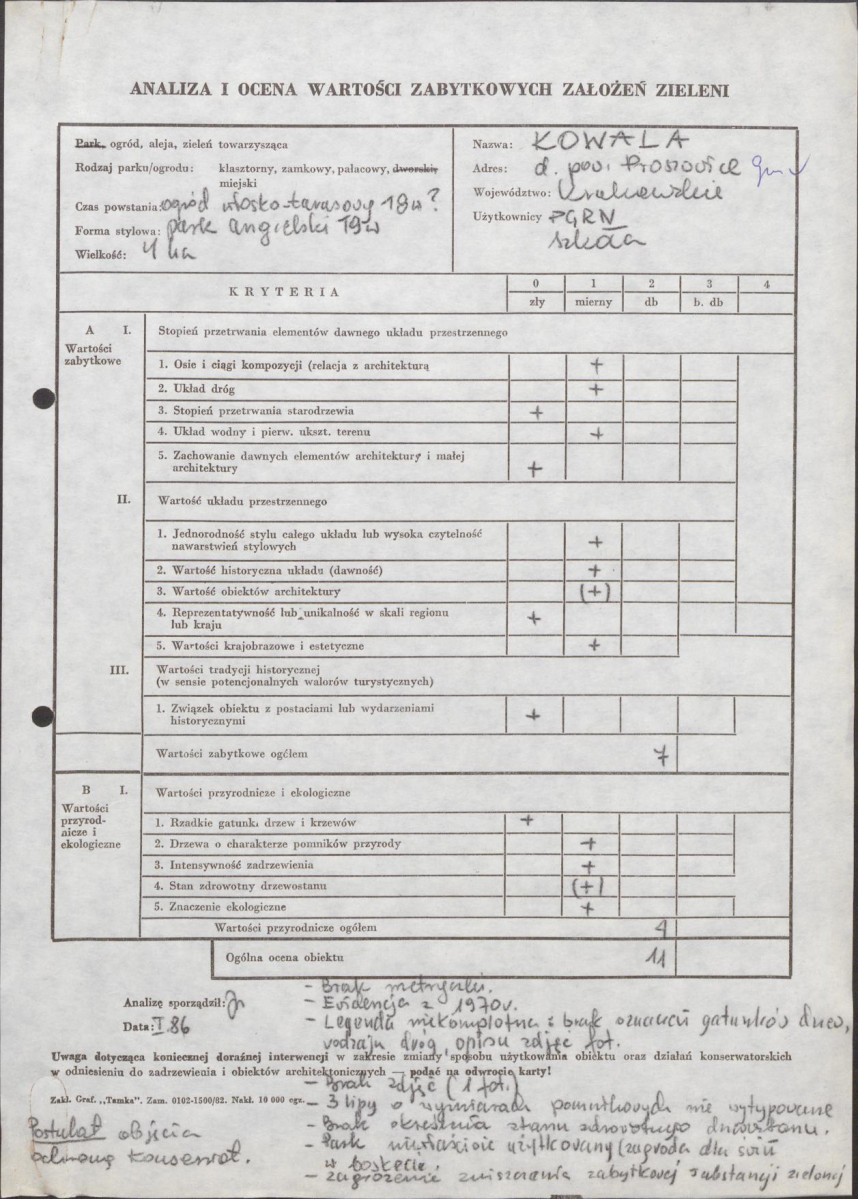 ANALIZA I OCENA WARTOŚCI ZABYTKOWYCH ZAŁOŻEŃ ZIELENI
Park, ogród, aleja, zieleń towarzysząca
Rodzaj parku/ogrodu: klasztorny, zamkowy, pałacowy, dworski,
miejski
Czas powstania: ogród włosko-tarasowy 18w?
Forma stylowa: park angielski 19w
Wielkość: 4 ha
Nazwa: KOWALA
Adres: d. pow. Proszowice gm
Województwo: Krakowskie
Użytkownicy PGRN
szkoła
KRYTERIA
0 1 2 3 4
zły mierny db b. db
A I. Stopień przetrwania elementów dawnego układu przestrzennego
Wartości
zabytkowe
1. Osie i ciągi kompozycji (relacja z architekturą +
2. Układ dróg +
3. Stopień przetrwania starodrzewia +
4. Układ wodny i pierw. ukszt. terenu +
5. Zachowanie dawnych elementów architektury i małej
architektury +
II. Wartość układu przestrzennego
1. Jednorodność stylu całego układu lub wysoka czytelność
nawarstwień stylowych +
2. Wartość historyczna układu (dawność) +
3. Wartość obiektów architektury (+)
4. Reprezentatywność lub unikalność w skali regionu
lub kraju +
5. Wartości krajobrazowe i estetyczne +
III. Wartości tradycji historycznej
(w sensie potencjonalnych walorów turystycznych)
1. Związek obiektu z postaciami lub wydarzeniami
historycznymi +
Wartości zabytkowe ogółem 7
B I. Wartości przyrodnicze i ekologiczne
Wartości
przyrod-
nicze i
ekologiczne
1. Rzadkie gatunki drzew i krzewów +
2. Drzewa o charakterze pomników przyrody +
3. Intensywność zadrzewienia +
4. Stan zdrowotny drzewostanu (+)
5. Znaczenie ekologiczne +
Wartości przyrodnicze ogółem 4
Ogólna ocena obiektu 11
- Brak metryczki.
Analizę sporządził:
- Ewidencja z 1970r.
Data: I 86
- Legenda niekompletna: brak oznaczeń gatunków drzew,
rodzaju dróg, opisu zdjęć fot.
Uwaga dotycząca koniecznej doraźnej interwencji w zakresie zmiany sposobu użytkowania obiektu oraz działań konserwatorskich
w odniesieniu do zadrzewienia i obiektów architektonicznych — podać na odwrocie karty!
- Brak zdjęć (1 fot.)
Zakł. Graf. „Tamka”. Zam. 0102-1500/82. Nakł. 10 000 egz.
- 3 lipy o wymiarach pomnikowych nie wytypowane
- Brak określenia stanu zdrowotnego drzewostanu.
Postulat objęcia
ochroną konserwat.
- Park niewłaściwie użytkowany (zagroda dla świń
w boskecie.
- zagrożenie zniszczenia zabytkowej substancji zielonej